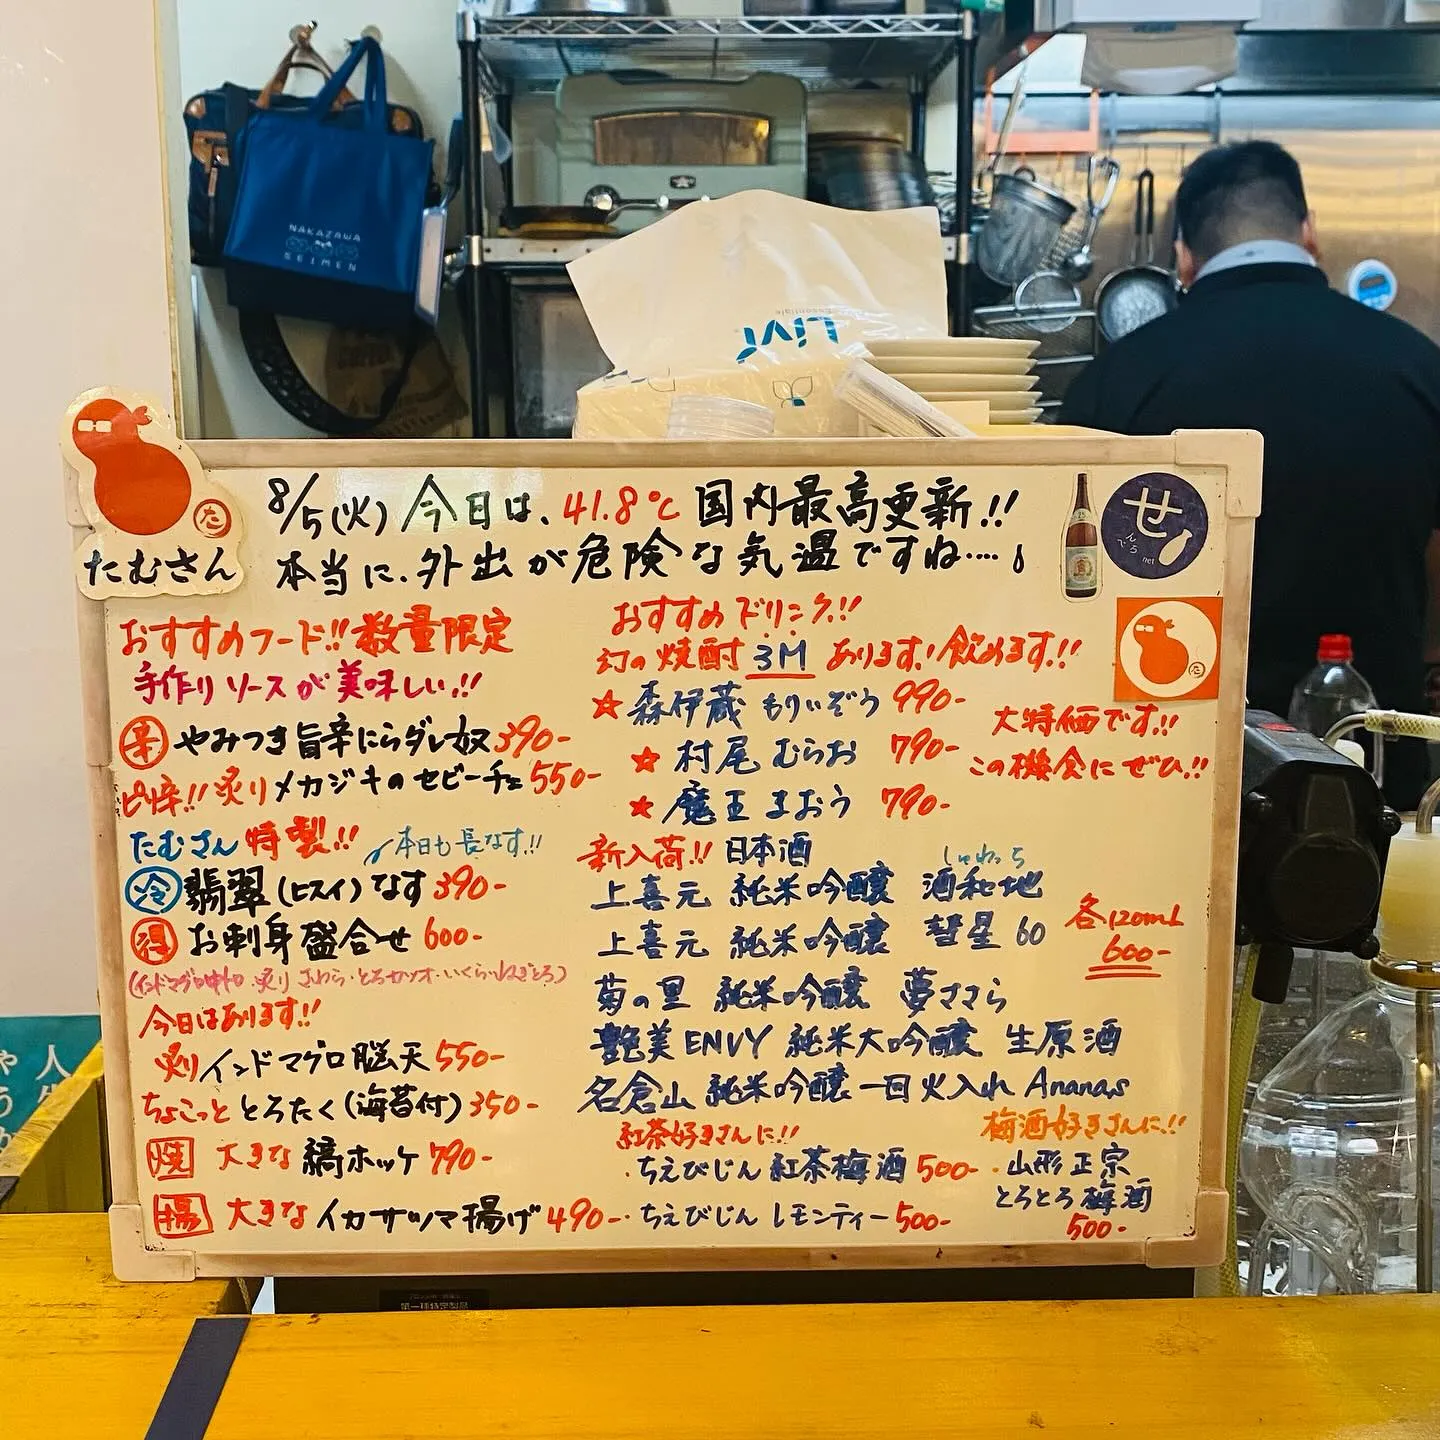 NAKAZAWA
SEIMEN
Livi
Essentials
たむさん
た
8/5(火) 今日は、41.8℃ 国内最高更新!!
本当に、外出が危険な気温ですね…..
せ
んべろ
net
おすすめフード!! 数量限定
手作りソースが美味しい!!
辛 やみつき旨辛にらダレ奴 390-
ピリ辛!! 炙りメカジキのセビーチェ 550-
たむさん特製!!
本日も長なす!!
冷 翡翠(ヒスイ)なす 390-
得 お刺身盛合せ 600-
(インドマグロ中トロ・炙りさわら・とろカツオ・いくら・ねぎとろ)
今日はあります!!
炙りインドマグロ脳天 550-
ちょこっと とろたく(海苔付) 350-
焼 大きな縞ホッケ 790-
揚 大きなイカサツマ揚げ 490-
おすすめドリンク!!
幻の焼酎 3M あります!飲めます!!
☆ 森伊蔵 もりいぞう 990-
☆ 村尾 むらお 790-
☆ 魔王 まおう 790-
大特価です!!
この機会にぜひ!!
新入荷!! 日本酒
しゅわっち
上喜元 純米吟醸 酒和地
上喜元 純米吟醸 彗星60
菊の里 純米吟醸 夢ささら
艶美ENVY 純米大吟醸 生原酒
名倉山 純米吟醸 一回火入れ Ananas
各120mL
600-
紅茶好きさんに!!
・ちえびじん 紅茶梅酒 500-
・ちえびじん レモンティー 500-
梅酒好きさんに!!
・山形正宗
とろとろ梅酒
500-
第一種特定製品